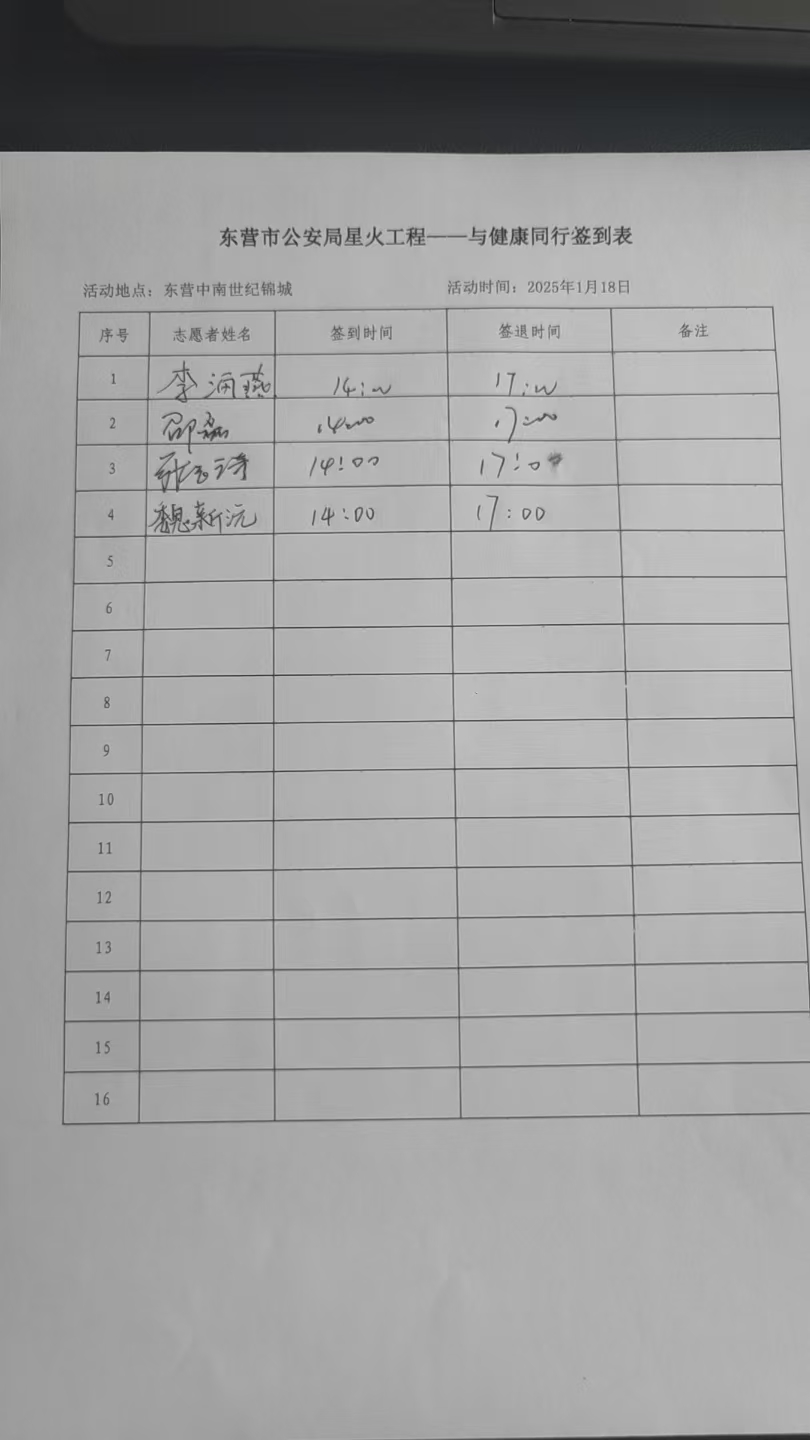 东营市公安局星火工程——与健康同行签到表
活动地点：东营中南世纪锦城 活动时间：2025年1月18日
序号 志愿者姓名 签到时间 签退时间 备注
1 李 14:00 17:00
2 邵磊 14:00 17:00
3 14:00 17:00
4 魏新沅 14:00 17:00
5
6
7
8
9
10
11
12
13
14
15
16